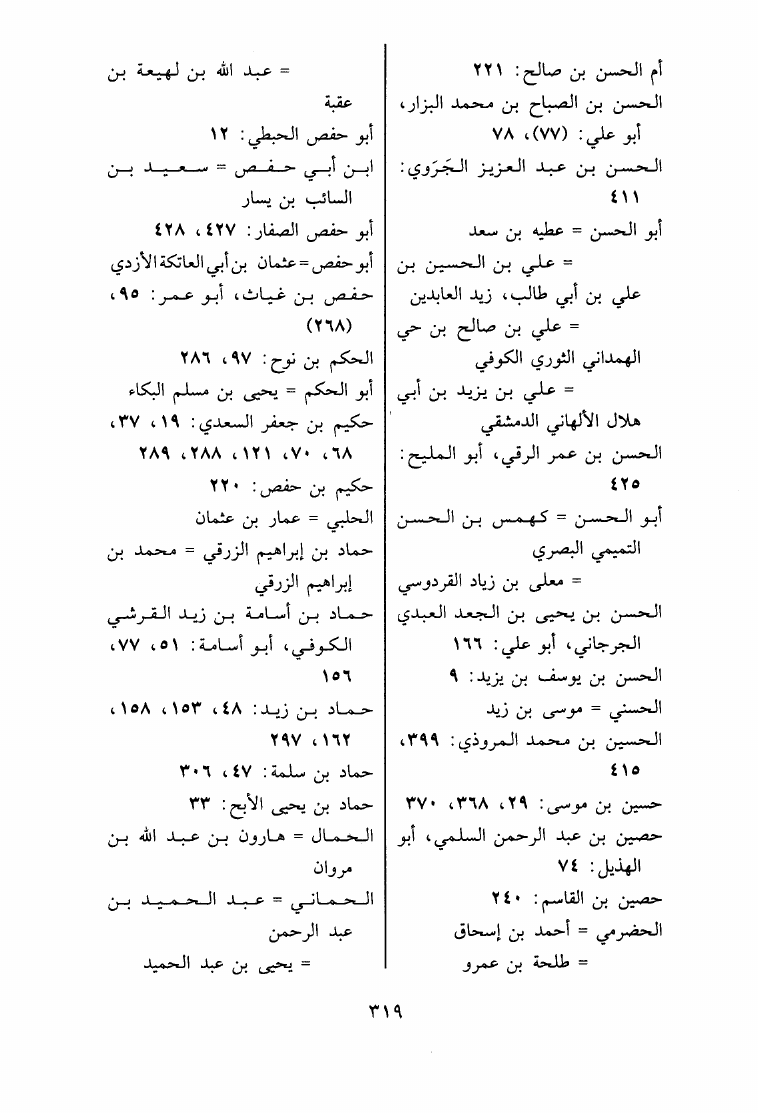 أم الحسن بن صالح: ٢٢١
الحسن بن الصباح بن محمد البزار،
أبو علي: (٧٧)، ٧٨
الحسن بن عبد العزيز الجَرَوي:
٤١١
أبو الحسن = عطيه بن سعد
= علي بن الحسين بن
علي بن أبي طالب، زيد العابدين
= علي بن صالح بن حي
الهمداني الثوري الكوفي
= علي بن يزيد بن أبي
هلال الألهاني الدمشقي
الحسن بن عمر الرقي، أبو المليح:
٤٢٥
أبو الحسن = كهمس بن الحسن
التميمي البصري
= معلى بن زياد القردوسي
الحسن بن يحيى بن الجعد العبدي
الجرجاني، أبو علي: ١٦٦
الحسن بن يوسف بن يزيد: ٩
الحسني = موسى بن زيد
الحسين بن محمد المروذي: ٣٩٩،
٤١٥
حسين بن موسى: ٢٩، ٣٦٨، ٣٧٠
حصين بن عبد الرحمن السلمي، أبو
الهذيل: ٧٤
حصين بن القاسم: ٢٤٠
الحضرمي = أحمد بن إسحاق
= طلحة بن عمرو
= عبد الله بن لهيعة بن
عقبة
أبو حفص الحبطي: ١٢
ابن أبي حفص = سعيد بن
السائب بن يسار
أبو حفص الصفار: ٤٢٧، ٤٢٨
أبو حفص = عثمان بن أبي العاتكة الأزدي
حفص بن غياث، أبو عمر: ٩٥،
(٢٦٨)
الحكم بن نوح: ٩٧، ٢٨٦
أبو الحكم = يحيى بن مسلم البكاء
حكيم بن جعفر السعدي: ١٩، ٣٧،
٦٨، ٧٠، ١٢١، ٢٨٨، ٢٨٩
حكيم بن حفص: ٢٢٠
الحلبي = عمار بن عثمان
حماد بن إبراهيم الزرقي = محمد بن
إبراهيم الزرقي
حماد بن أسامة بن زيد القرشي
الكوفي، أبو أسامة: ٥١، ٧٧،
١٥٦
حماد بن زيد: ٤٨، ١٥٣، ١٥٨،
١٦٢، ٢٩٧
حماد بن سلمة: ٤٧، ٣٠٦
حماد بن يحيى الأبح: ٣٣
الحمال = هارون بن عبد الله بن
مروان
الحماني = عبد الحميد بن
عبد الرحمن
= يحيى بن عبد الحميد
٣١٩